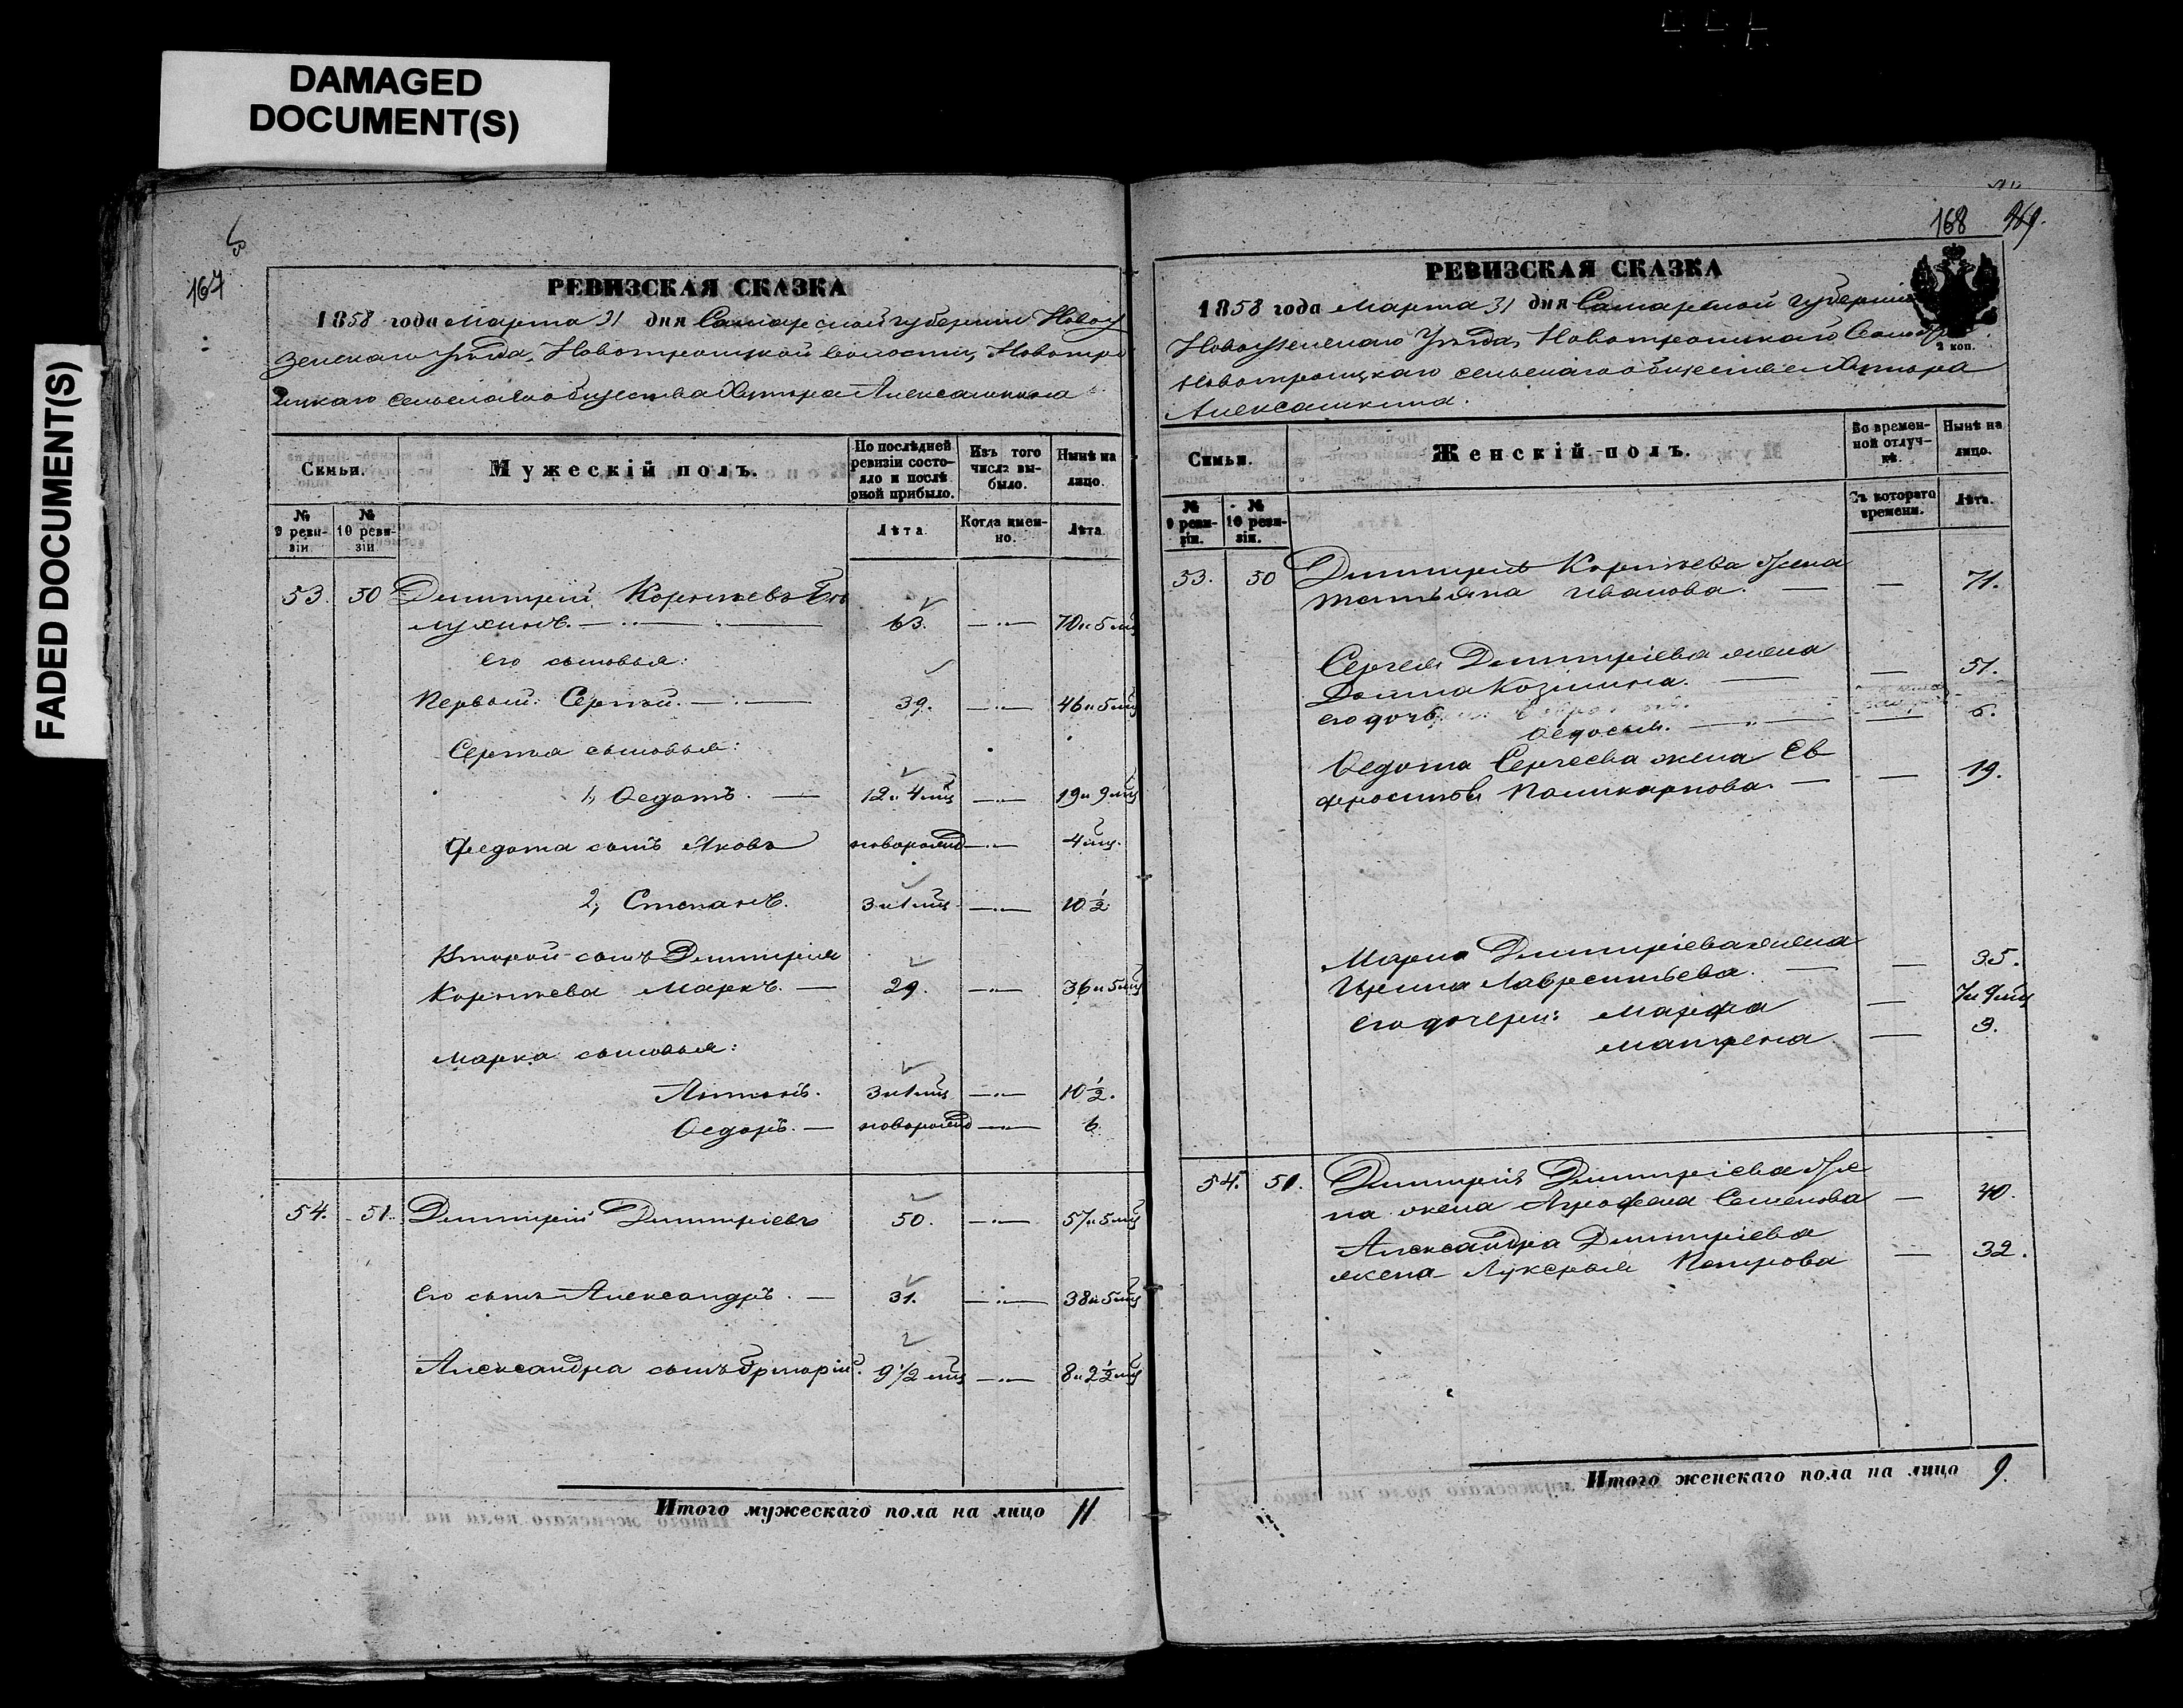 DAMAGED
DOCUMENT(S)
FADED DOCUMENT(S)
167
РЕВИЗСКАЯ СКАЗКА
1858 года Марта 31 дня Самарской губернии Новоу
зенскаго Уѣзда, Новотроицкой волости, Новотро
ицкаго сельскаго общества Хутора Алексашкина
Семьи.
Мужескій полъ.
По послѣдней ревизіи состояло и послѣ оной прибыло.
Изъ того числа выбыло.
Нынѣ на лицо.
№ 9 ревизіи
№ 10 ревизіи
Лѣта.
Когда именно.
Лѣта.
53. 50 Дмитрій
63. 70 и 5 мц
его сыновья:
Первый: Сергѣй. 39. 46 и 5 мц
Сергѣя сыновья:
1, Ѳедотъ. 12 и 4 мц 19 и 9 мц
Федота сынъ Яковъ новорожд 4 мц.
2, Степанъ. 3 и 1 мц 10 ½
Второй сынъ Дмитрія
Маркъ. 29. 36 и 5 мц
Марка сыновья:
Антонъ. 3 и 1 мц 10 ½.
Ѳедоръ. новорожд 6
54. 51. Дмитрій Дмитріевъ 50. 57 и 5 мц
Его сынъ Александръ. 31. 38 и 5 мц
Александра сынъ Григорій. 9 1/2 мц 8 и 2 ½ мц
Итого мужескаго пола на лицо 11
168
РЕВИЗСКАЯ СКАЗКА
2 коп.
1858 года Марта 31 дня Самарской губерніи
Новоузенскаго Уѣзда, Новотроицкаго
Новотроицкаго сельскаго общества Хутора
Алексашкина.
Семьи.
Женскій полъ.
Во временной отлучкѣ.
Нынѣ на лицо.
№ 9 ревизіи.
№ 10 ревизіи.
Съ котораго времени.
Лѣта.
53. 50 Дмитрія жена
Татьяна Иванова. 71.
Сергея Дмитріева жена
Домна Козмина. 51.
его дочь
Ѳедосья. 6.
Ѳедота Сергеева жена Ев
фросинья Поликарпова. 19.
Марка Дмитріева жена
Ирина Лаврентьева. 35.
его дочери: Марфа 7 и 9 мц
Матрена 3.
54. 51. Дмитрія Дмитріева же
на жена Агрофена Семенова 40.
Александра Дмитріева
жена Лукерья Петрова 32.
Итого женскаго пола на лицо 9.